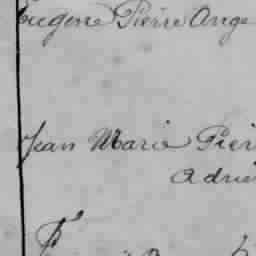 Eugene Pierre Ange
Jean Marie Pier
Adri